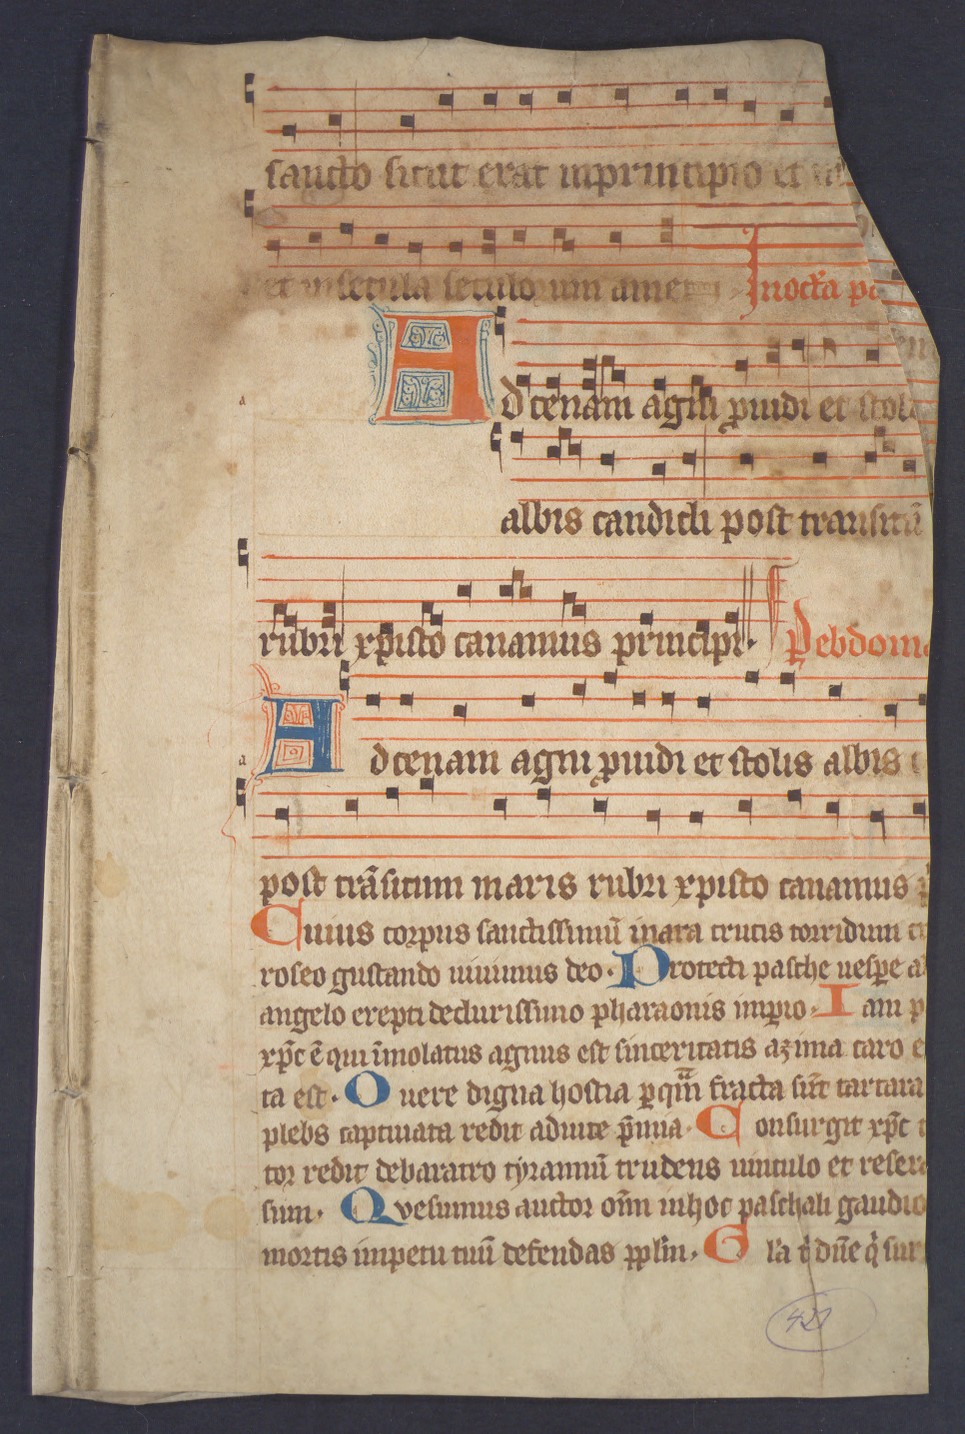 sancto sicut erat inprincipio et
et insecula seculorum amen Inoctã pa
Ad cenam agni ꝓuidi et stola
albis candidi post transitũ
rubri xpisto canamus principi. Pebdoma
Ad cenam agni ꝓuidi et stolis albis c
post trãsitum maris rubri xpisto canamus p
Cuius corpus sanctissimũ inara crucis torridum cr
roseo gustando uiuimus deo. Protecti pasche uesꝑe a
angelo erepti de durissimo pharaonis imꝑio. Iam p
xp̃c ẽ qui ĩmolatus agnus est sinceritatis azima caro e
ta est. O uere digna hostia ꝑ quã fracta sũt tartara
plebs captiuata redit aduite p̃mia. Consurgit xp̃c t
tor redit debaratro tyrannũ trudens uinculo et resera
sum. Quesumus auctor om̃ inhoc paschali gaudio
mortis impetu tuũ defendas ꝓplm̃. Gl'a t' dñe q' sur
a
a
421